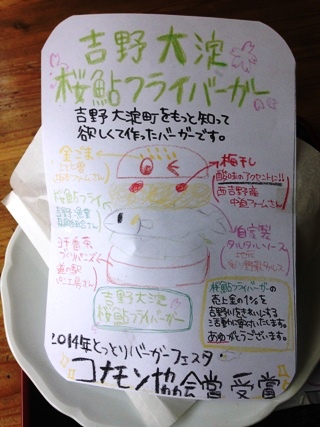 吉野大淀
桜鮎フライバーガー
吉野大淀町をもっと知って
欲しくて作ったバーガーです。
金ごま
梅干し
酸味のアクセントに!!
西吉野産
中道ファームさん
桜鮎フライ
吉野漁業
自家製
タルタルソース
ヨモギ香る
道の駅
吉野大淀
桜鮎フライバーガー
桜鮎フライバーガーの
売上金の1%を
吉野川をきれいにする
活動に寄付いたします。
ありがとうございます。
2014年とっとりバーガーフェスタ
コナモン協会賞受賞